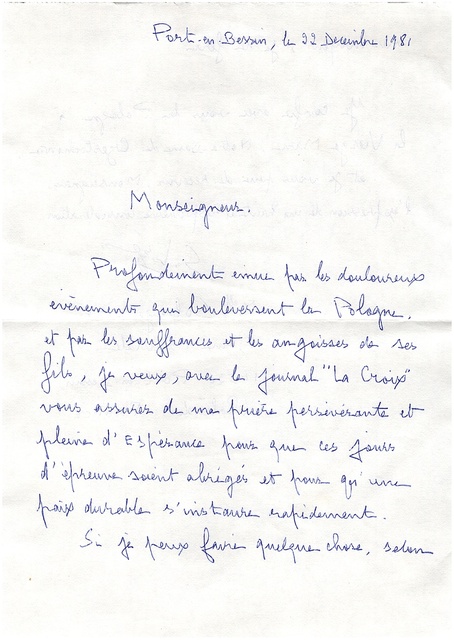 Port-en-Bessin, le 22 Décembre 1981
Monseigneur.
Profondément émue par les douloureux
évènements qui bouleversent la Pologne,
et par les souffrances et les angoisses de ses
fils, je veux, avec le journal "La Croix"
vous assurer de ma prière persévérante et
pleine d'Espérance pour que ces jours
d'épreuve soient abrégés et pour qu'une
paix durable s'instaure rapidement.
Si je peux faire quelque chose, selon